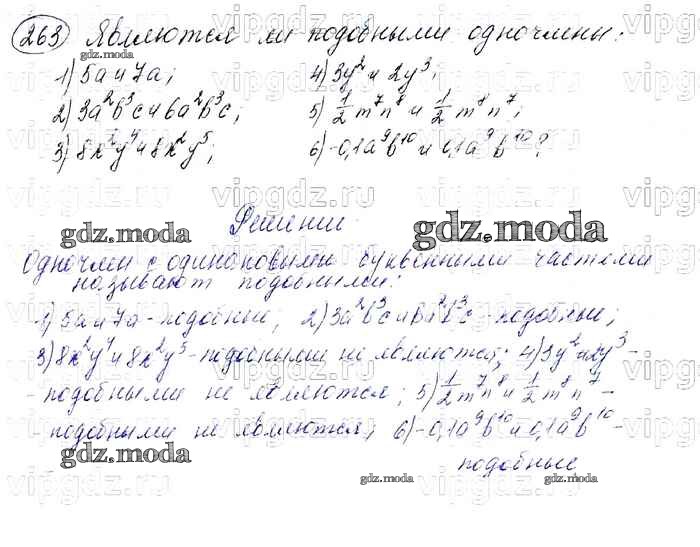 263 Являются ли подобными одночлены:
1) 5a и 7a; 4) 3y² и 2y³;
2) 3a²b³c и 6a²b³c; 5) 1/2 m⁷n⁸ и 1/2 m⁸n⁷;
3) 8x²y⁴ и 8x²y⁵; 6) -0,1a⁹b¹⁰ и 0,1a⁹b¹⁰?
gdz.moda gdz.moda
одночлен с одинаковыми буквенными частями
называют подобными:
1) 5a и 7a - подобные; 2) 3a²b³c и 6a²b³c - подобные;
3) 8x²y⁴ и 8x²y⁵ - подобными не являются; 4) 3y² и 2y³ -
- подобными не являются; 5) 1/2 m⁷n⁸ и 1/2 m⁸n⁷ -
- подобными не являются; 6) -0,1a⁹b¹⁰ и 0,1a⁹b¹⁰ -
подобные
gdz.moda gdz.moda
gdz.moda